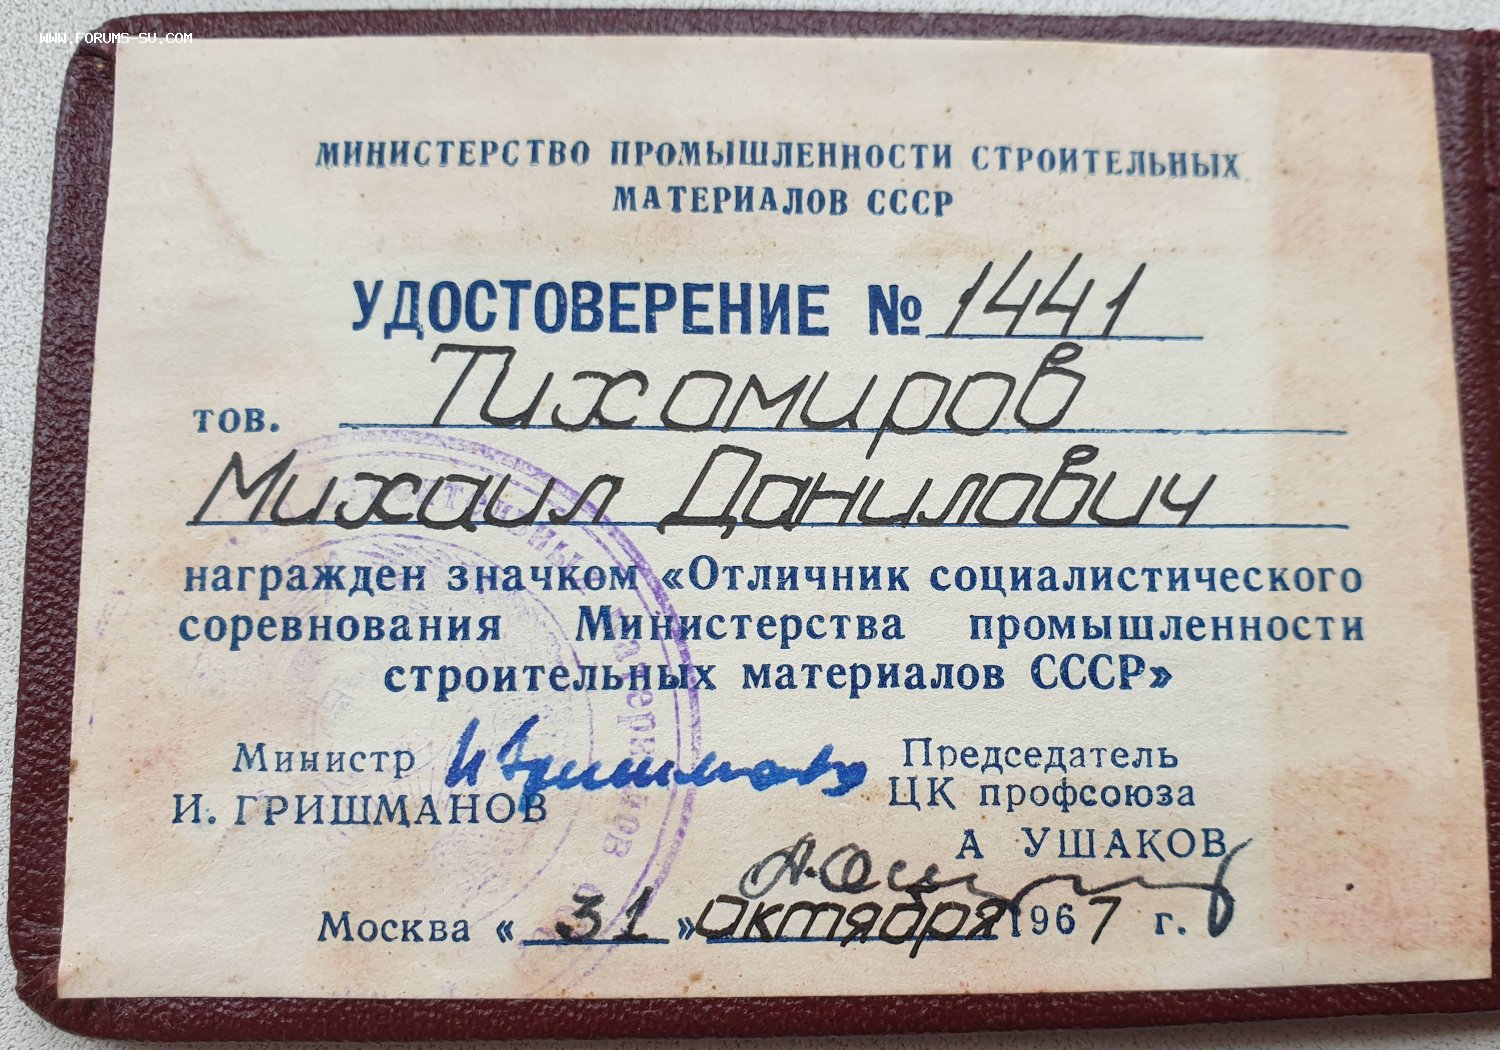 WWW.FORUMS-SU.COM
МИНИСТЕРСТВО ПРОМЫШЛЕННОСТИ СТРОИТЕЛЬНЫХ
МАТЕРИАЛОВ СССР
УДОСТОВЕРЕНИЕ № 1441
тов. Тихомиров
Михаил Данилович
награжден значком «Отличник социалистического
соревнования Министерства промышленности
строительных материалов СССР»
Министр
И. ГРИШМАНОВ
Председатель
ЦК профсоюза
А УШАКОВ
Москва « 31 » октября 1967 г.